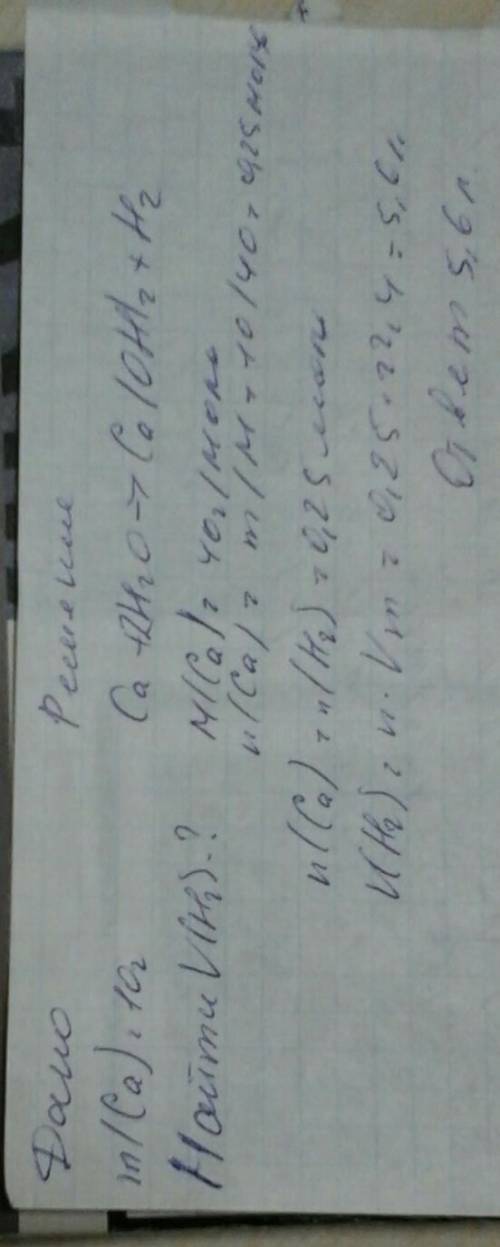 Дано
m(Ca)=10г
Найти V(H2)-?
Решение
Ca+2H2O→Ca(OH)2+H2
M(Ca)=40г/моль
n(Ca)=m/M=10/40=0,25моль
n(Ca)=n(H2)=0,25моль
V(H2)=n·Vm=0,25·22,4=5,6л
Ответ 5,6л